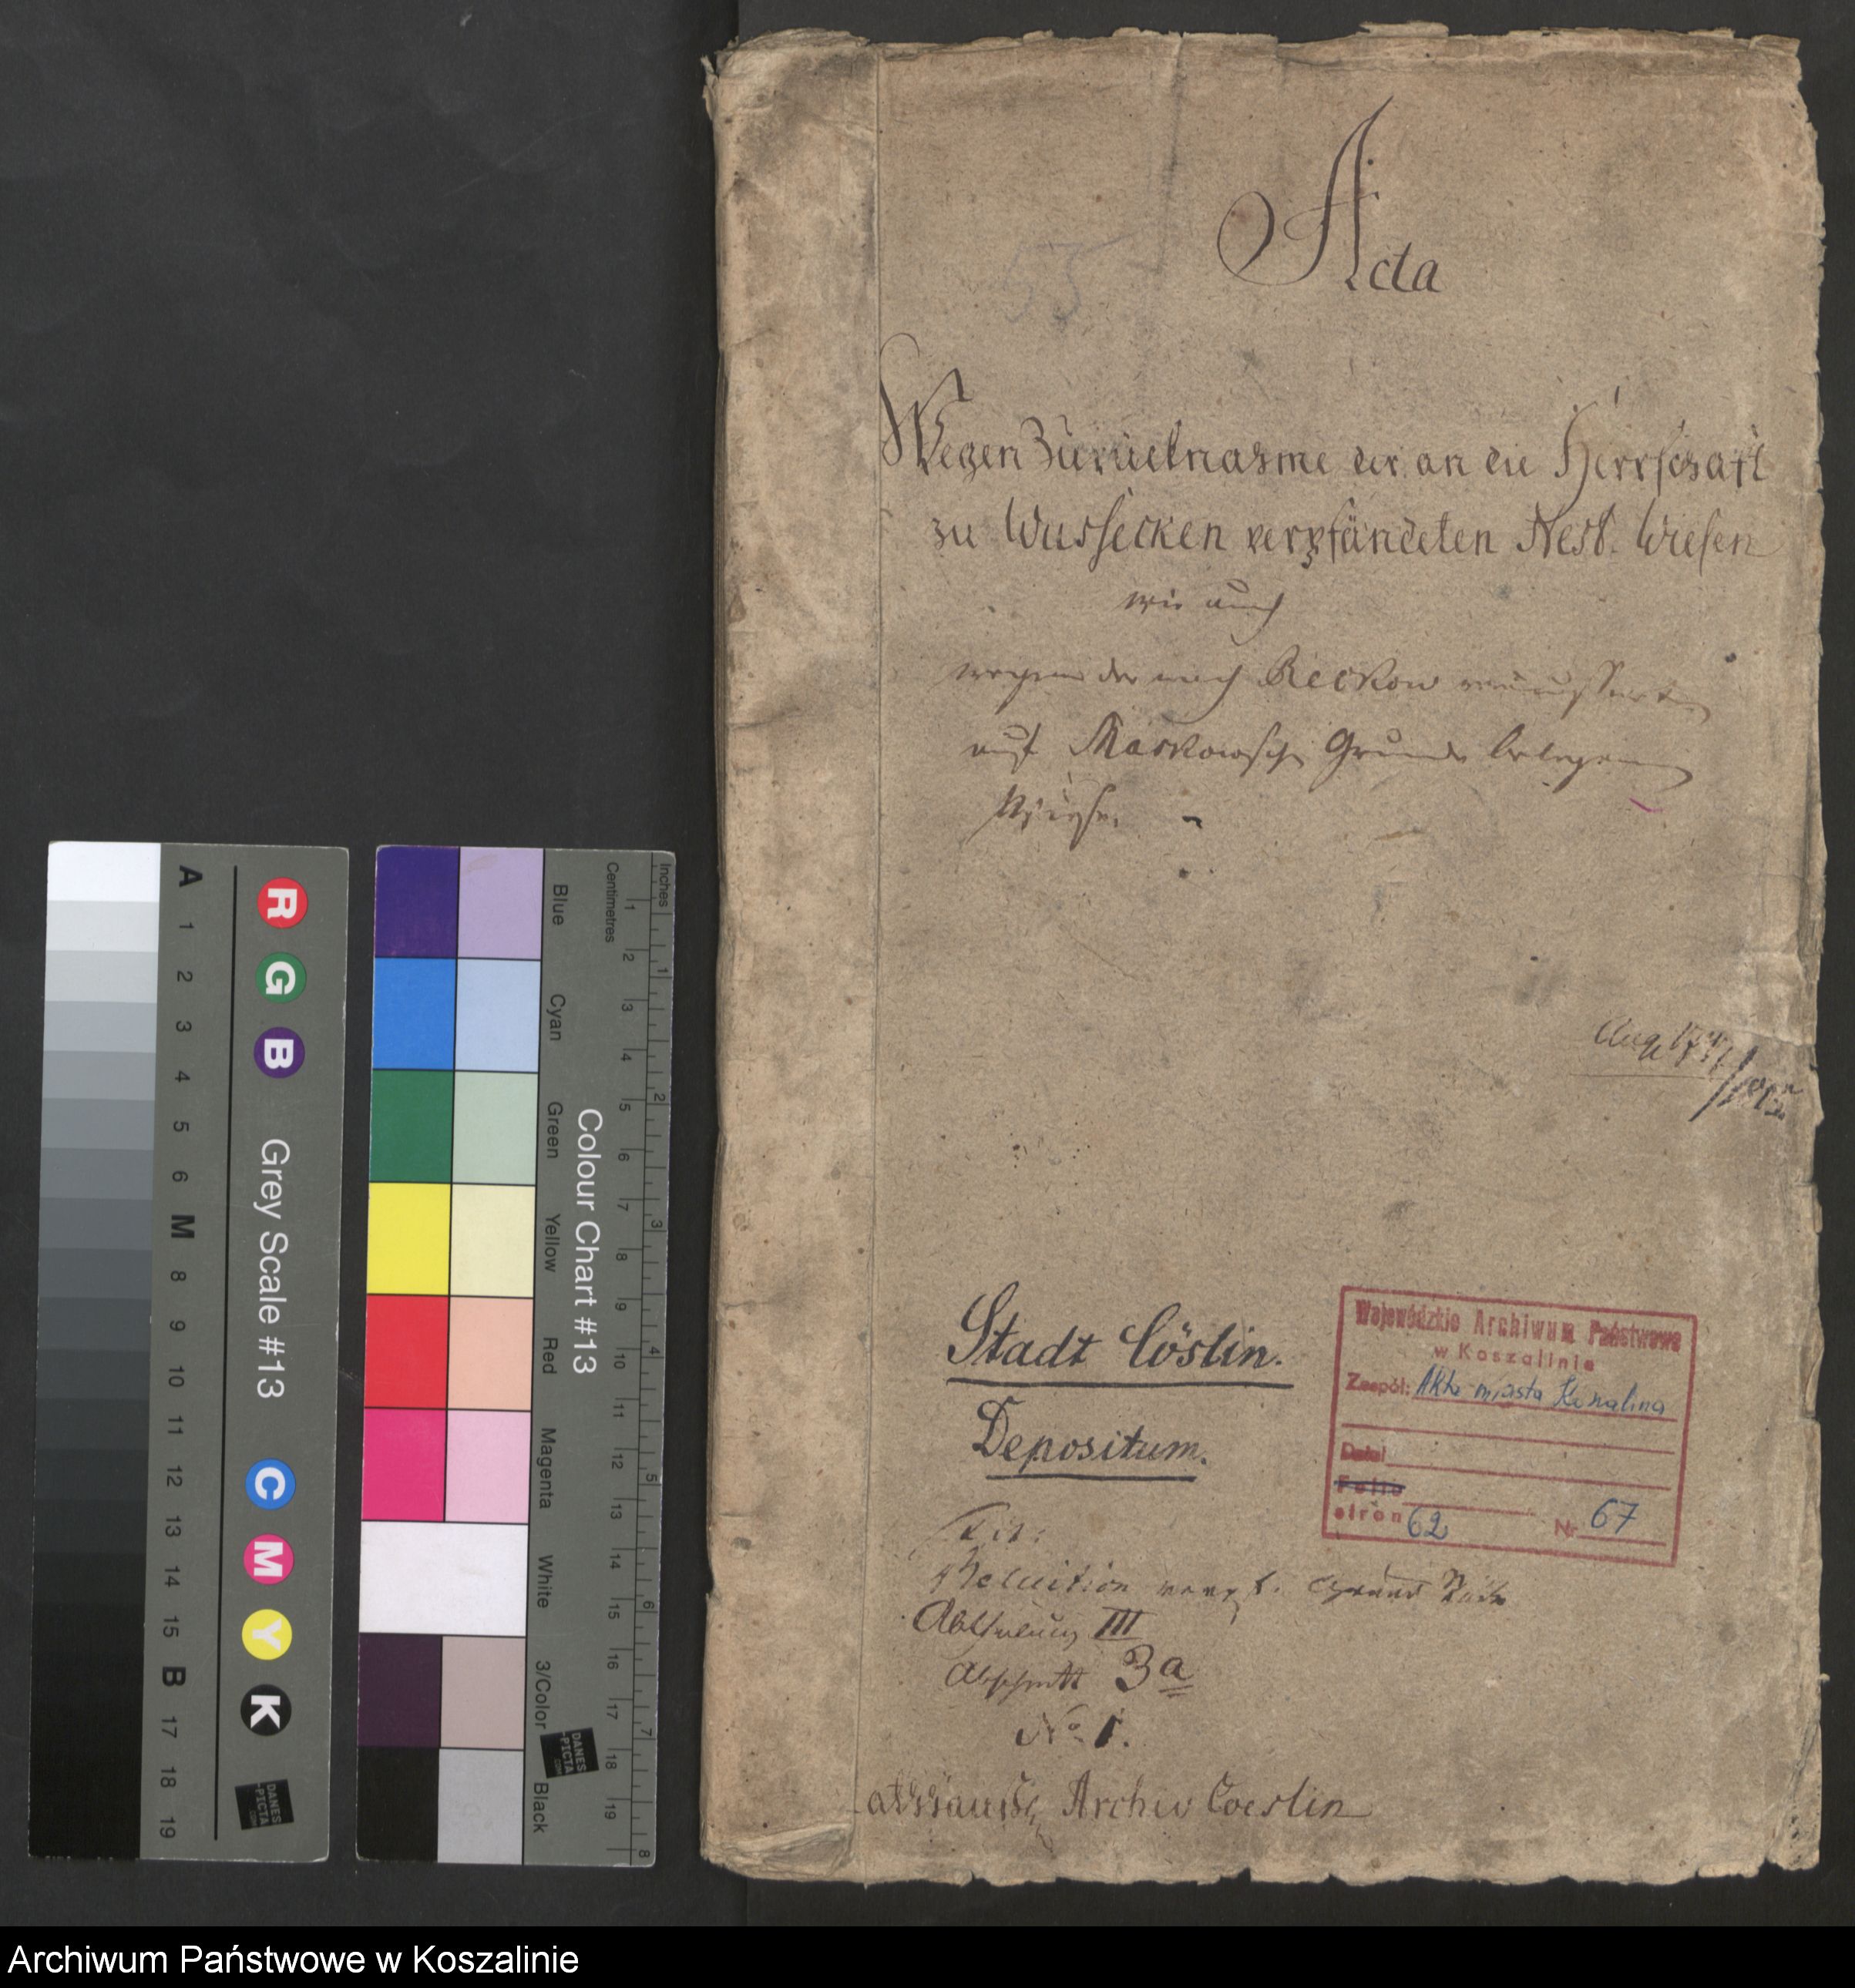 Acta
53
Wegen Zurücknahme der an die Herrschaft
zu Wussecken verpfändeten Nest. Wiesen
wie auch
wegen der nach Reckow veräusserten
auf Maskowsche Grunde belegenen
Wiese.
Stadt Cöslin.
Depositum.
Tit:
Reluition verpf. Grund Stücke
Abtheilung III
Abschnitt 3a
No 1.
Archiv Coeslin
Wojewódzkie Archiwum Państwowe
w Koszalinie
Zespół: Akta miasta Koszalina
Dział
Folio
stron 62 Nr 67
A 1 2 3 4 5 6 M 8 9 10 11 12 13 14 15 B 17 18 19
R G B
Grey Scale #13
C M Y K
DANES
PICTA
.COM
Blue Cyan Green Yellow Red Magenta White 3/Color Black
Colour Chart #13
DANES
PICTA
.COM
Centimetres 1 2 3 4 5 6 7 8 9 10 11 12 13 14 15 16 17 18 19
Inches 1 2 3 4 5 6 7 8
Archiwum Państwowe w Koszalinie